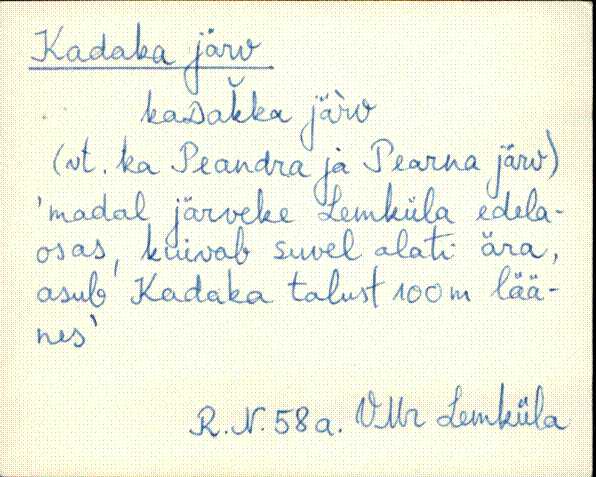 Kadaka järv
kaᴅak̆ka jä̀rv
(vt. ka Peandra ja Pearna järv)
'madal järveke Lemküla edela-
osas, kuivab suvel alati ära,
asub Kadaka talust 100 m lää-
nes'
R.N. 58 a. VMr Lemküla